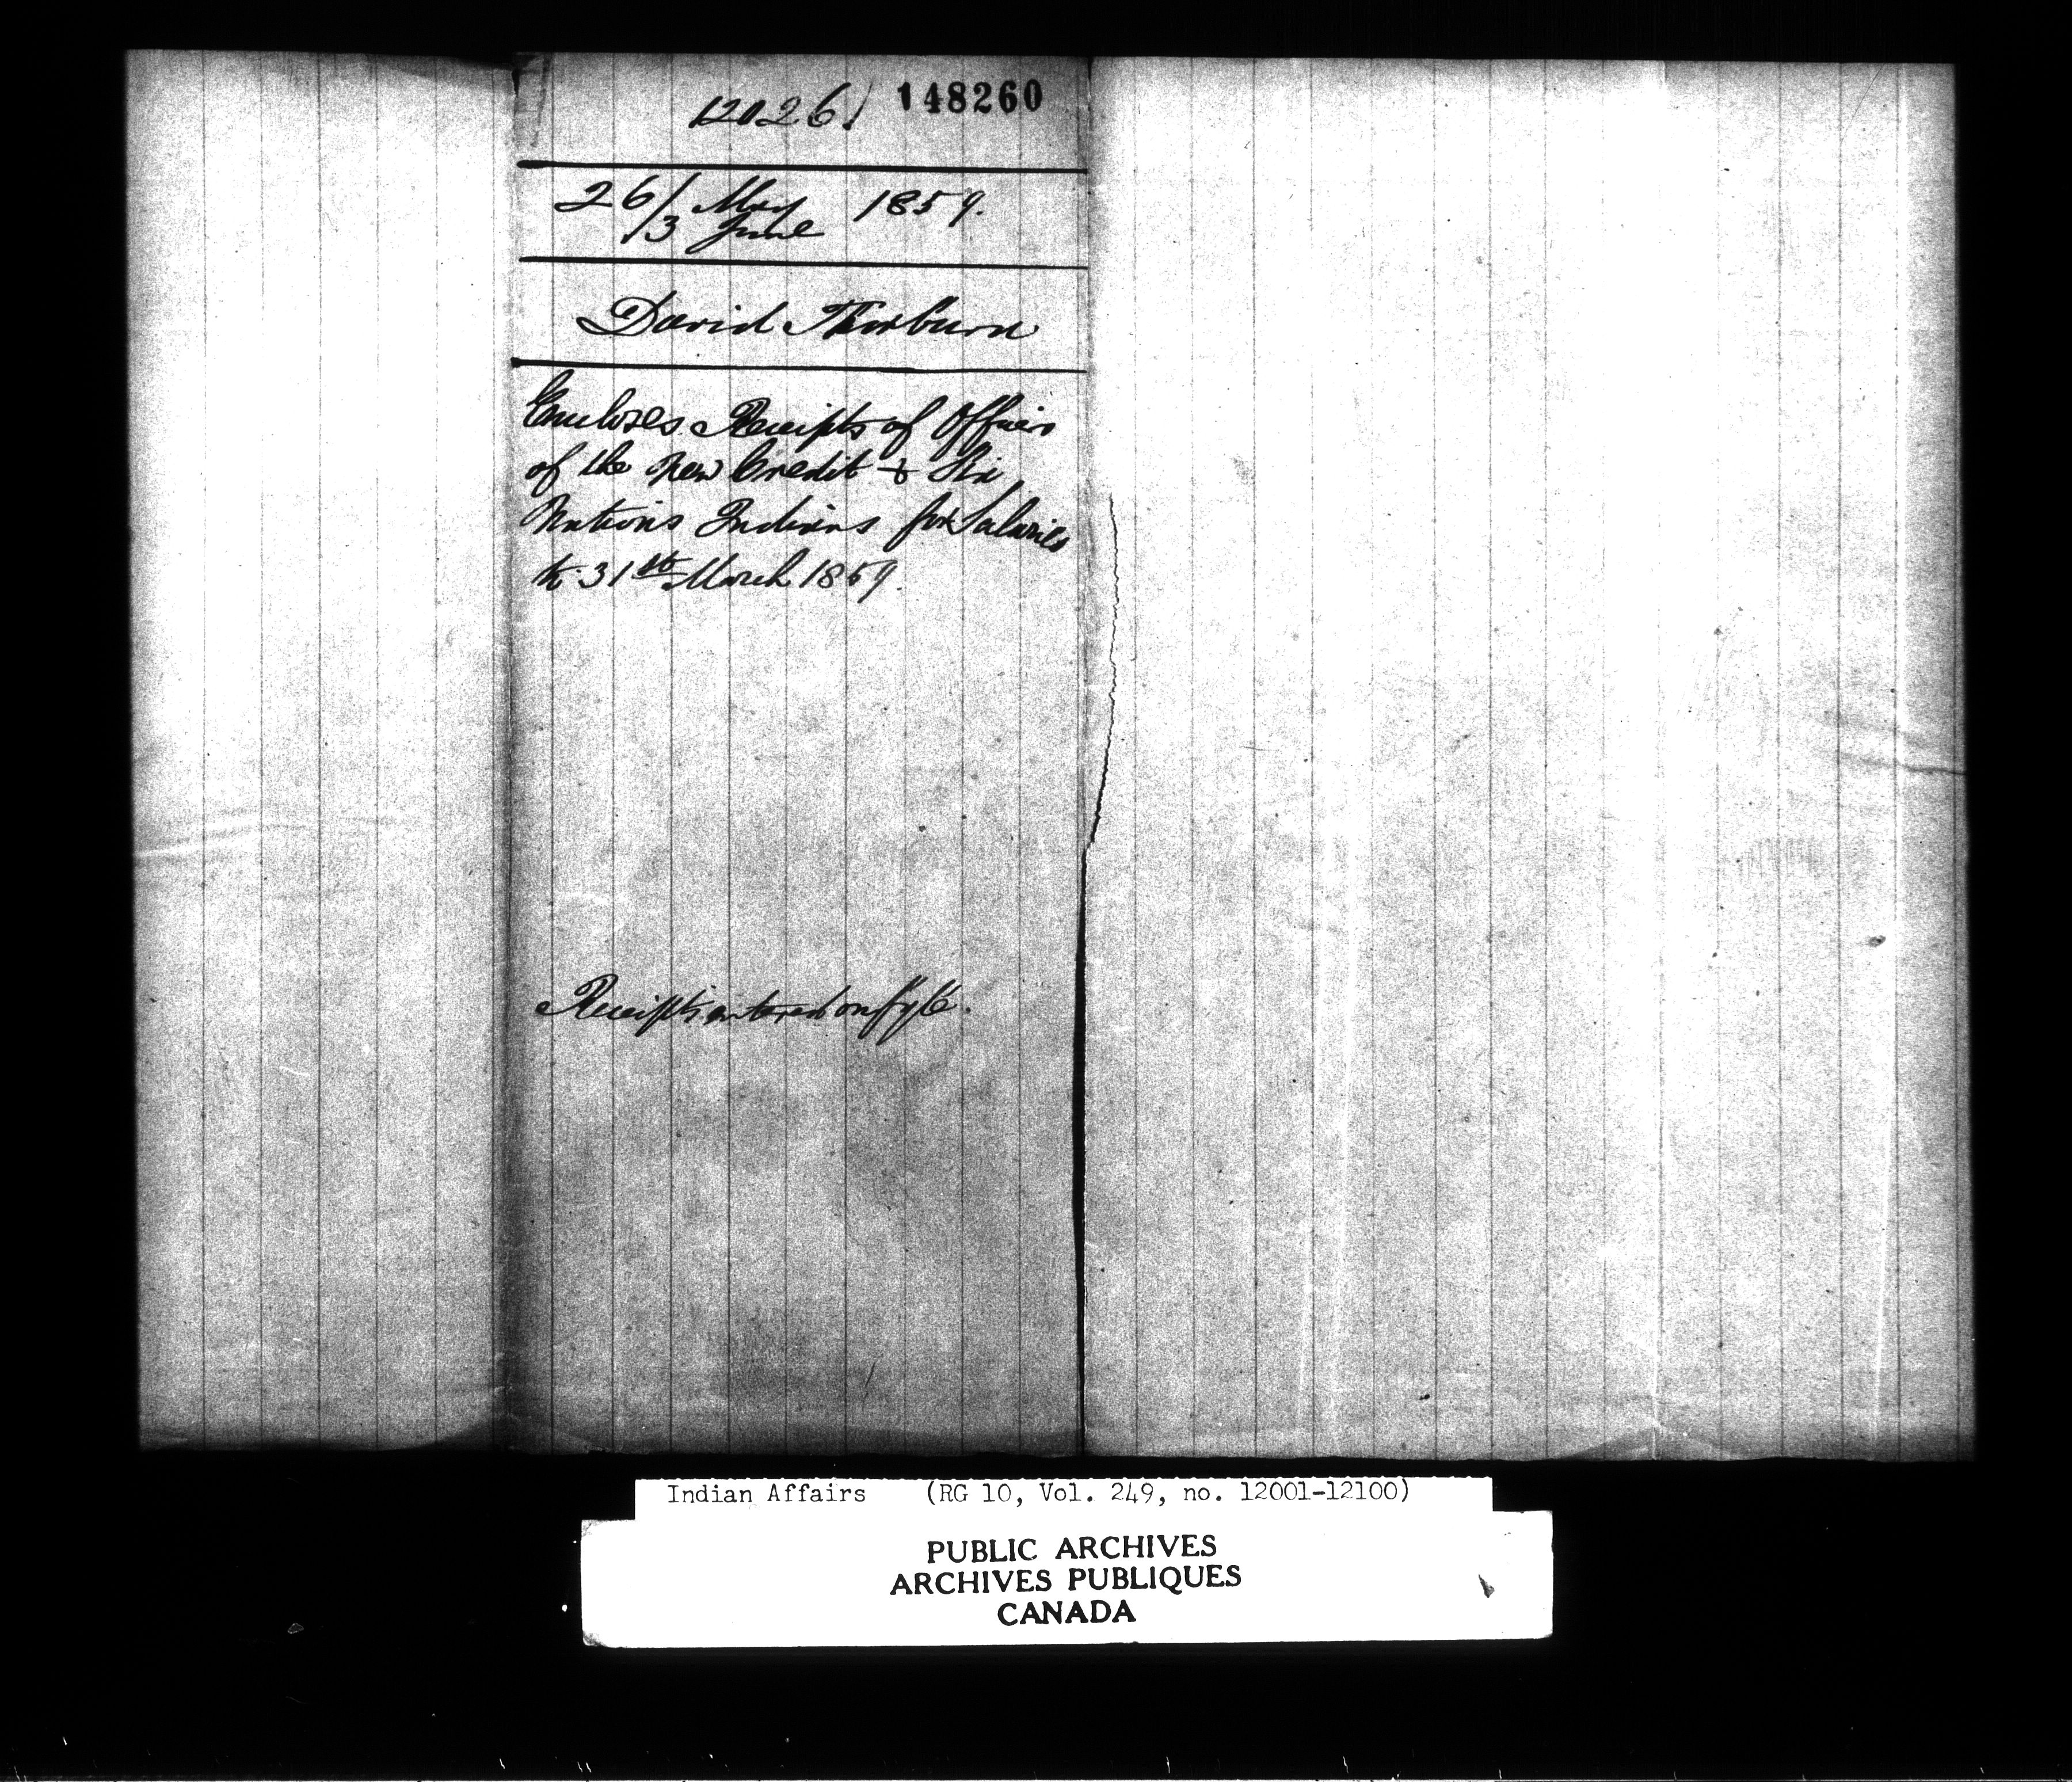 12026 148260
26/ May 1859.
/3 June
David Thorburn
Encloses Receipts of Officers
of the New Credit & Six
Nations Indians for Salaries
to 31st March 1859.
Receipts entered on
Indian Affairs (RG 10, Vol. 249, no. 12001-12100)
PUBLIC ARCHIVES
ARCHIVES PUBLIQUES
CANADA